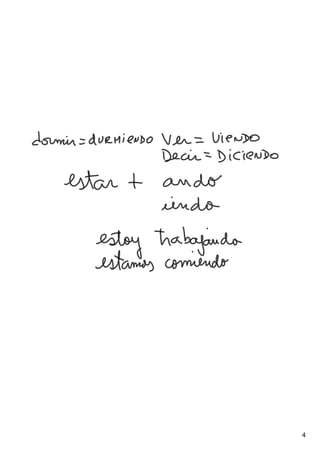 dormir = DURMIENDO Ver = VIENDO
Decir = DICIENDO
estar + ando
iendo
estoy trabajando
estamos comiendo
4